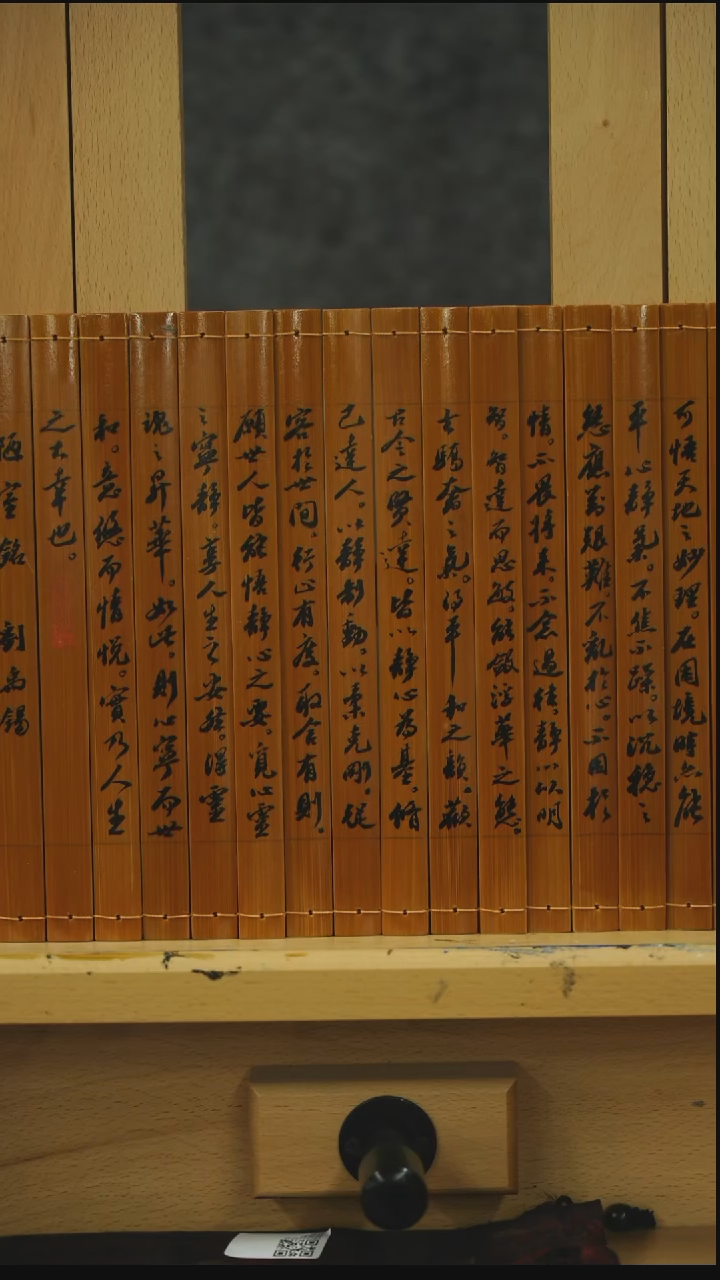 可悟天地之妙理。在困境時亦能
平心靜氣。不焦不躁。以沉穩之
態應對艱難。不亂於心。不困於
情。不畏將來。不念過往。靜以啟明
智。智達而思敏。能斂浮華之態。
去驕奢之氣。得平和之韻。觀
古今之賢達。皆以靜心為基。脩
己達人。以靜制動。以柔克剛。從
容於世間。行止有度。取舍有則。
願世人皆能悟靜心之要。覓心靈
之寧靜。尋人生之安然。得靈
魂之昇華。如此。則心寧而世
和。意悠而情悅。實乃人生
之大幸也。
陋室銘 劉禹錫